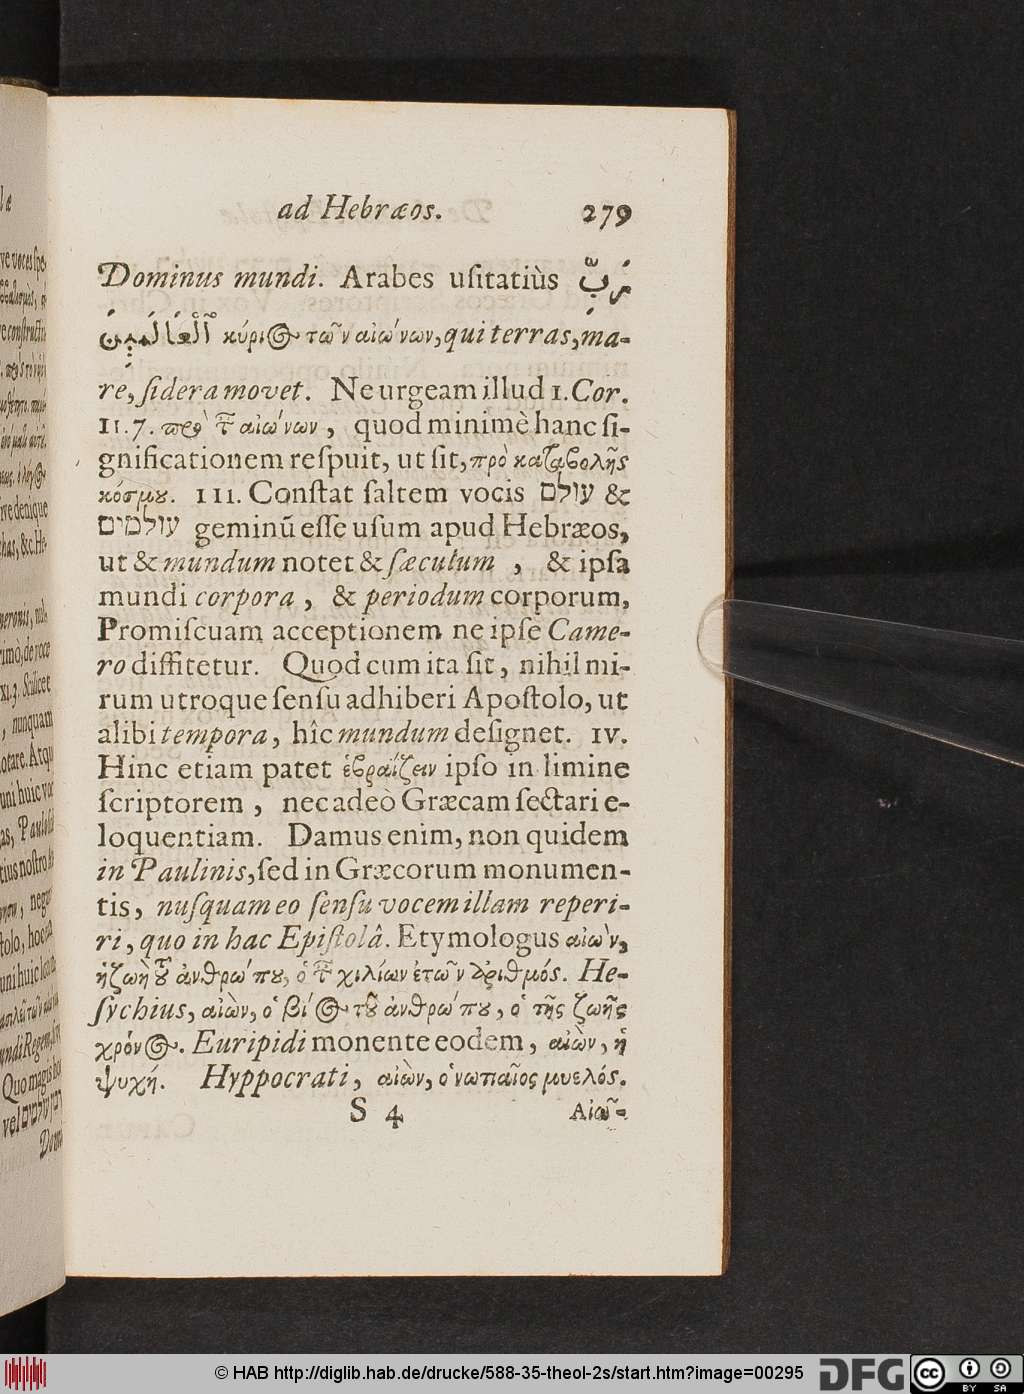 ad Hebræos. 279
Dominus mundi. Arabes uſitatiùs رَبّ
الْعَالَمِينَ κύρι૭ τῶν αἰώνων, qui terras, ma-
re, ſidera movet. Ne urgeam illud 1. Cor.
11. 7. πρὸ τ αἰώνων, quod minimè hanc ſi-
gnificationem reſpuit, ut ſit, πρὸ καταβολῆς
κόσμου. III. Conſtat ſaltem vocis עולם &
עולמים geminū eſſe uſum apud Hebræos,
ut & mundum notet & ſæculum , & ipſa
mundi corpora , & periodum corporum,
Promiſcuam acceptionem ne ipſe Came-
ro diffitetur. Quod cum ita ſit, nihil mi-
rum utroque ſenſu adhiberi Apoſtolo, ut
alibi tempora, hîc mundum deſignet. IV.
Hinc etiam patet ἑβραΐζειν ipſo in limine
ſcriptorem , nec adeò Græcam ſectari e-
loquentiam. Damus enim, non quidem
in Paulinis, ſed in Græcorum monumen-
tis, nuſquam eo ſenſu vocem illam reperi-
ri, quo in hac Epiſtolâ. Etymologus αἰὼν,
ἡ ζωὴ τοῦ ἀνθρώπου, ὁ τ χιλίων ἐτῶν ἀριθμός. He-
ſychius, αἰὼν, ὁ βίος τοῦ ἀνθρώπου, ὁ τῆς ζωῆς
χρόνος. Euripidi monente eodem, αἰὼν, ἡ
ψυχή. Hyppocrati, αἰὼν, ὁ νωτιαῖος μυελός.
S 4 Αἰῶ-
© HAB http://diglib.hab.de/drucke/588-35-theol-2s/start.htm?image=00295
DFG
cc BY SA